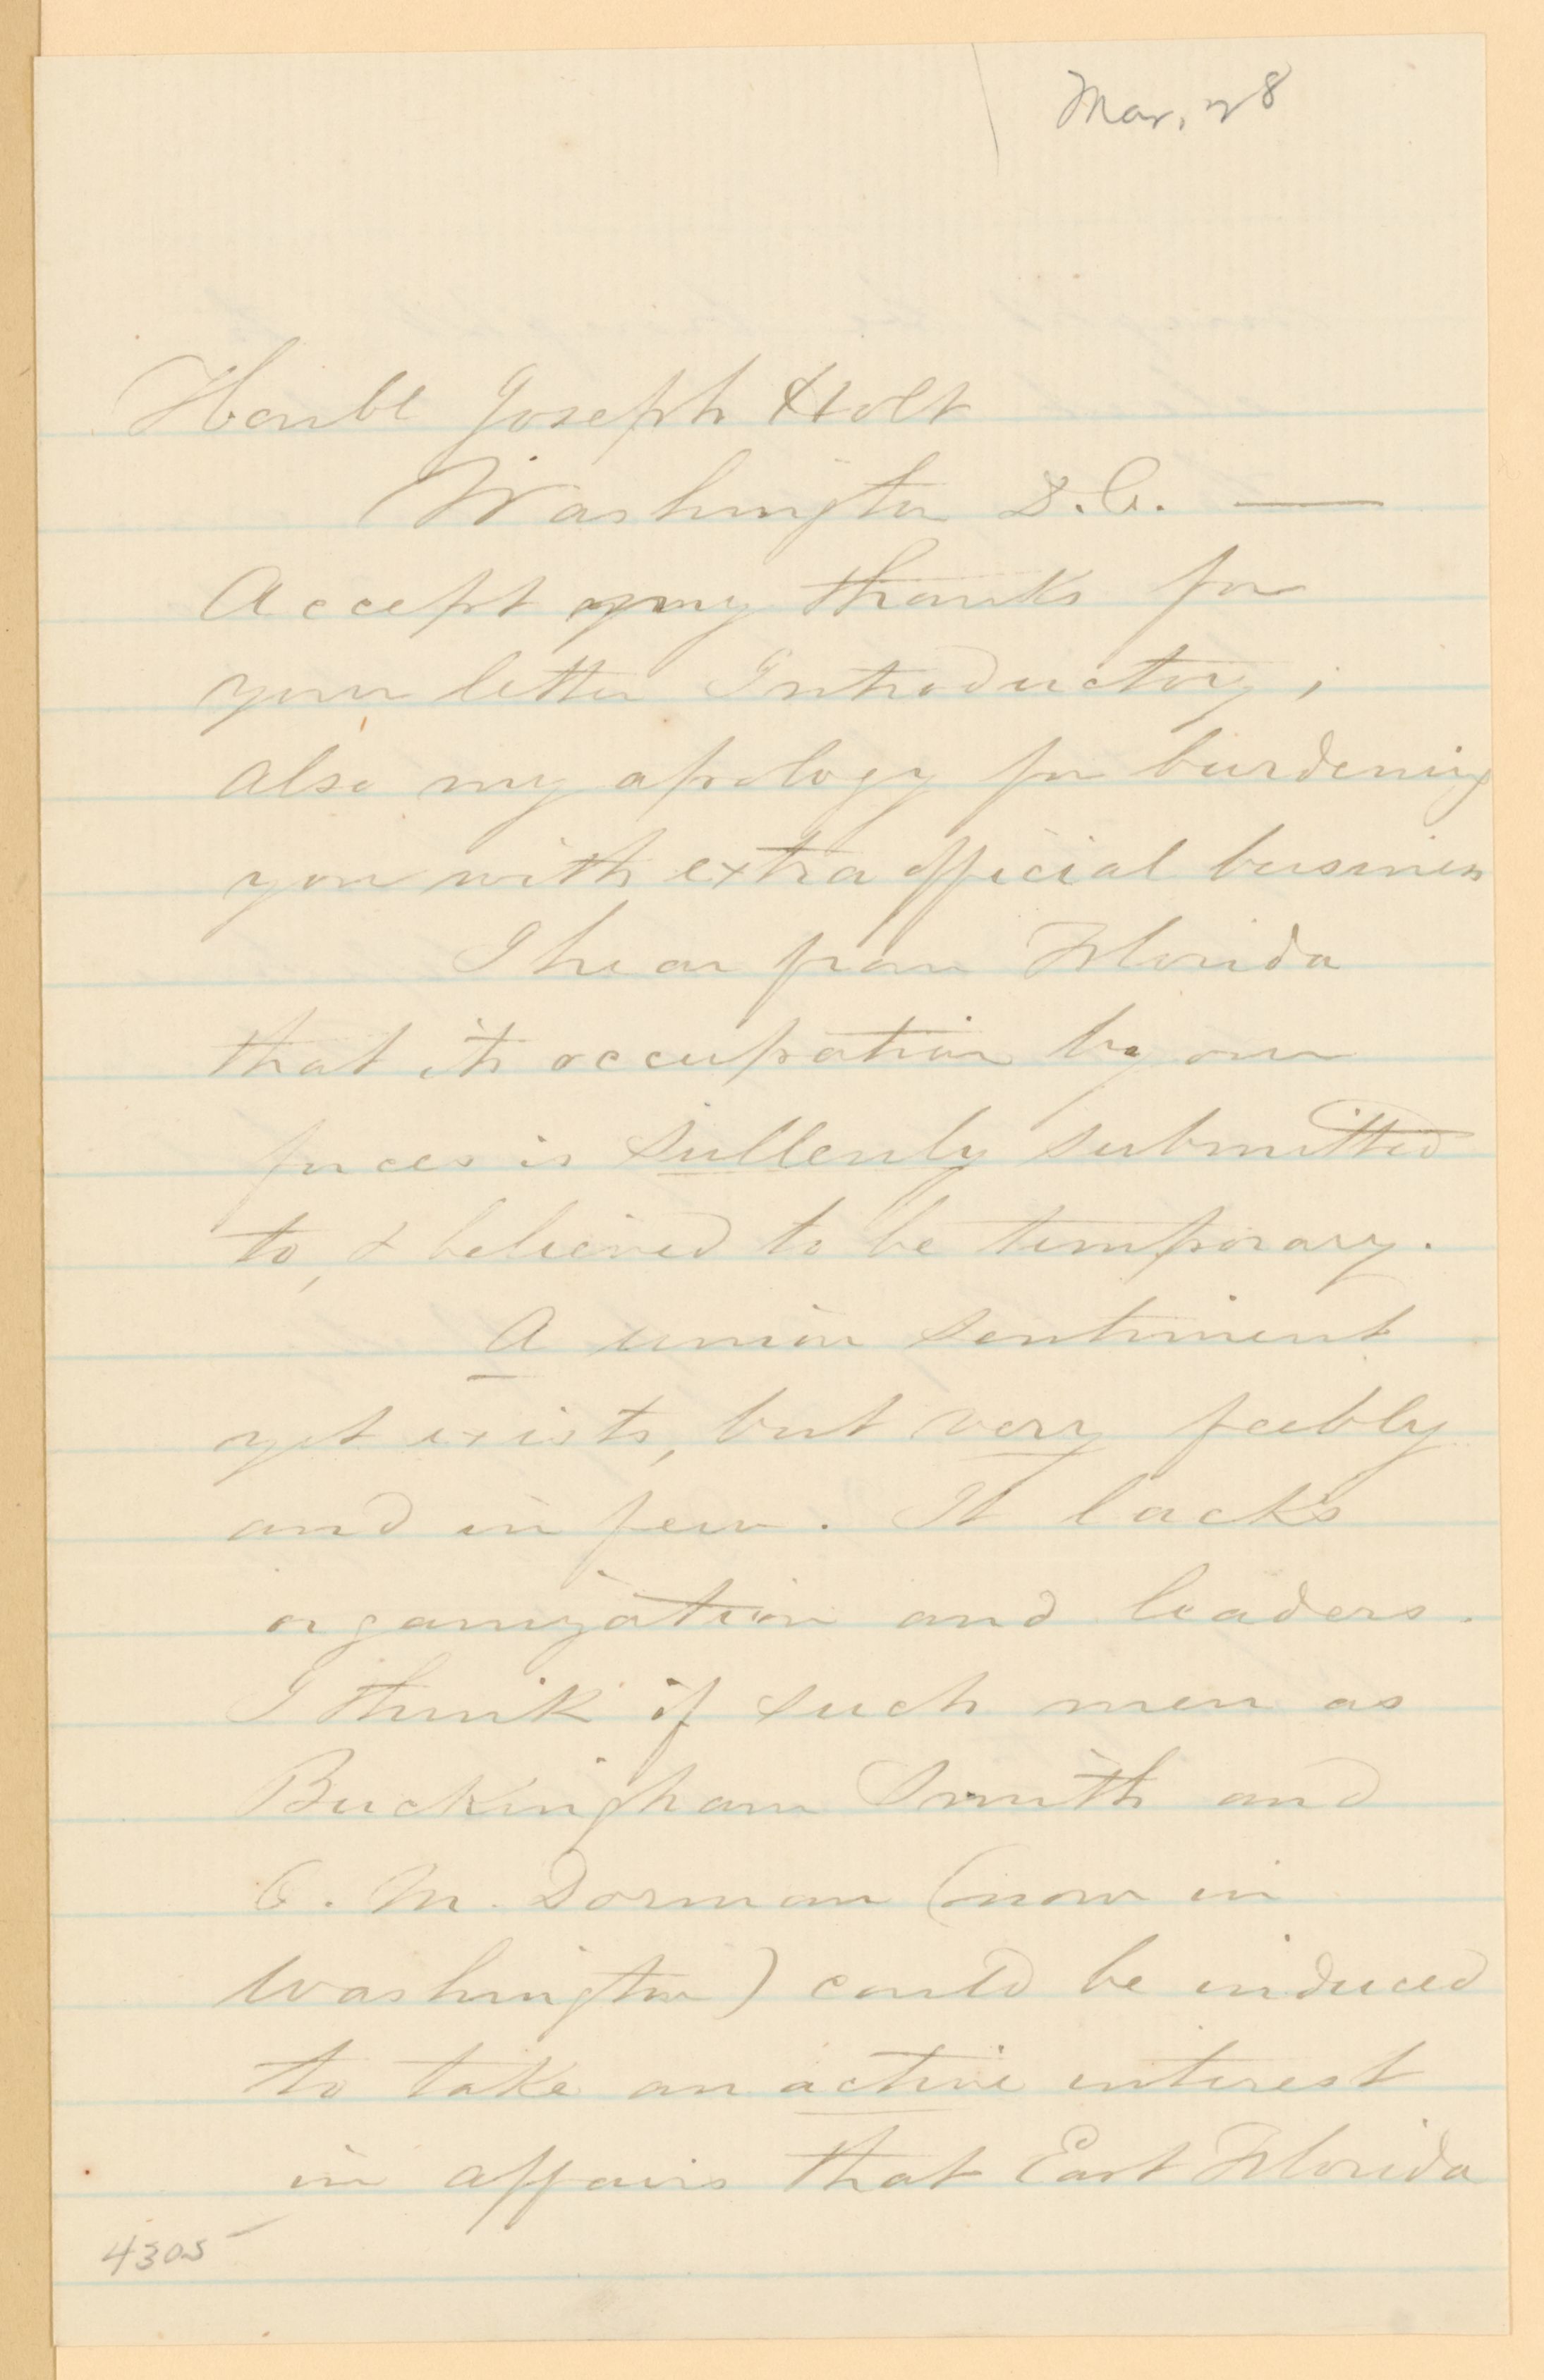 Mar, 28
Honbl Joseph Holt
Washington D.C. —
Accept my thanks for
your letter Introductory;
also my apology for burdening
you with extra official business
I hear from Florida
that its occupation by our
forces is sullenly submitted
to, & believed to be temporary.
A union sentiment
yet exists, but very feebly
and in few. It lacks
organization and leaders.
I think if such men as
Buckingham Smith and
C. M. Dorman (now in
Washington) could be induced
to take an active interest
in affairs that East Florida
4305